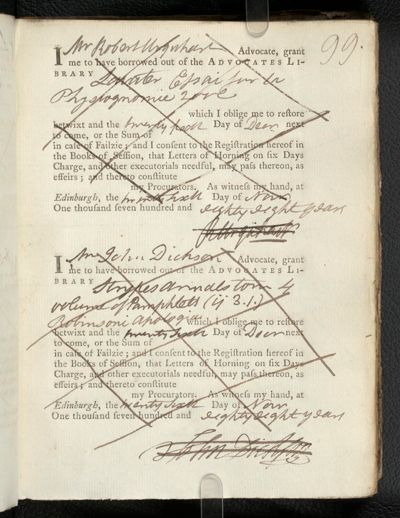 99.
I Mr Robert Urquhart Advocate, grant
me to have borrowed out of the ADVOCATES LI-
BRARY Lavater Essai sur la
Physiognomie 2 vol
which I oblige me to restore
betwixt and the twenty sixth Day of Decr next
to come, or the Sum of
in case of Failzie; and I consent to the Registration hereof in
the Books of Session, that Letters of Horning on six Days
Charge, and other executorials needful, may pass thereon, as
effeirs; and thereto constitute
my Procurators. As witness my hand, at
Edinburgh, the twenty sixth Day of Novr
One thousand seven hundred and eighty eight years
I Mr John Dickson Advocate, grant
me to have borrowed out of the ADVOCATES LI-
BRARY Strypes annals tom 4
volume of Pamphlets
apologia which I oblige me to restore
betwixt and the twenty sixth Day of Decr next
to come, or the Sum of
in case of Failzie; and I consent to the Registration hereof in
the Books of Session, that Letters of Horning on six Days
Charge, and other executorials needful, may pass thereon, as
effeirs; and thereto constitute
my Procurators. As witness my hand, at
Edinburgh, the twenty sixth Day of Novr
One thousand seven hundred and eighty eight years
John Dickson